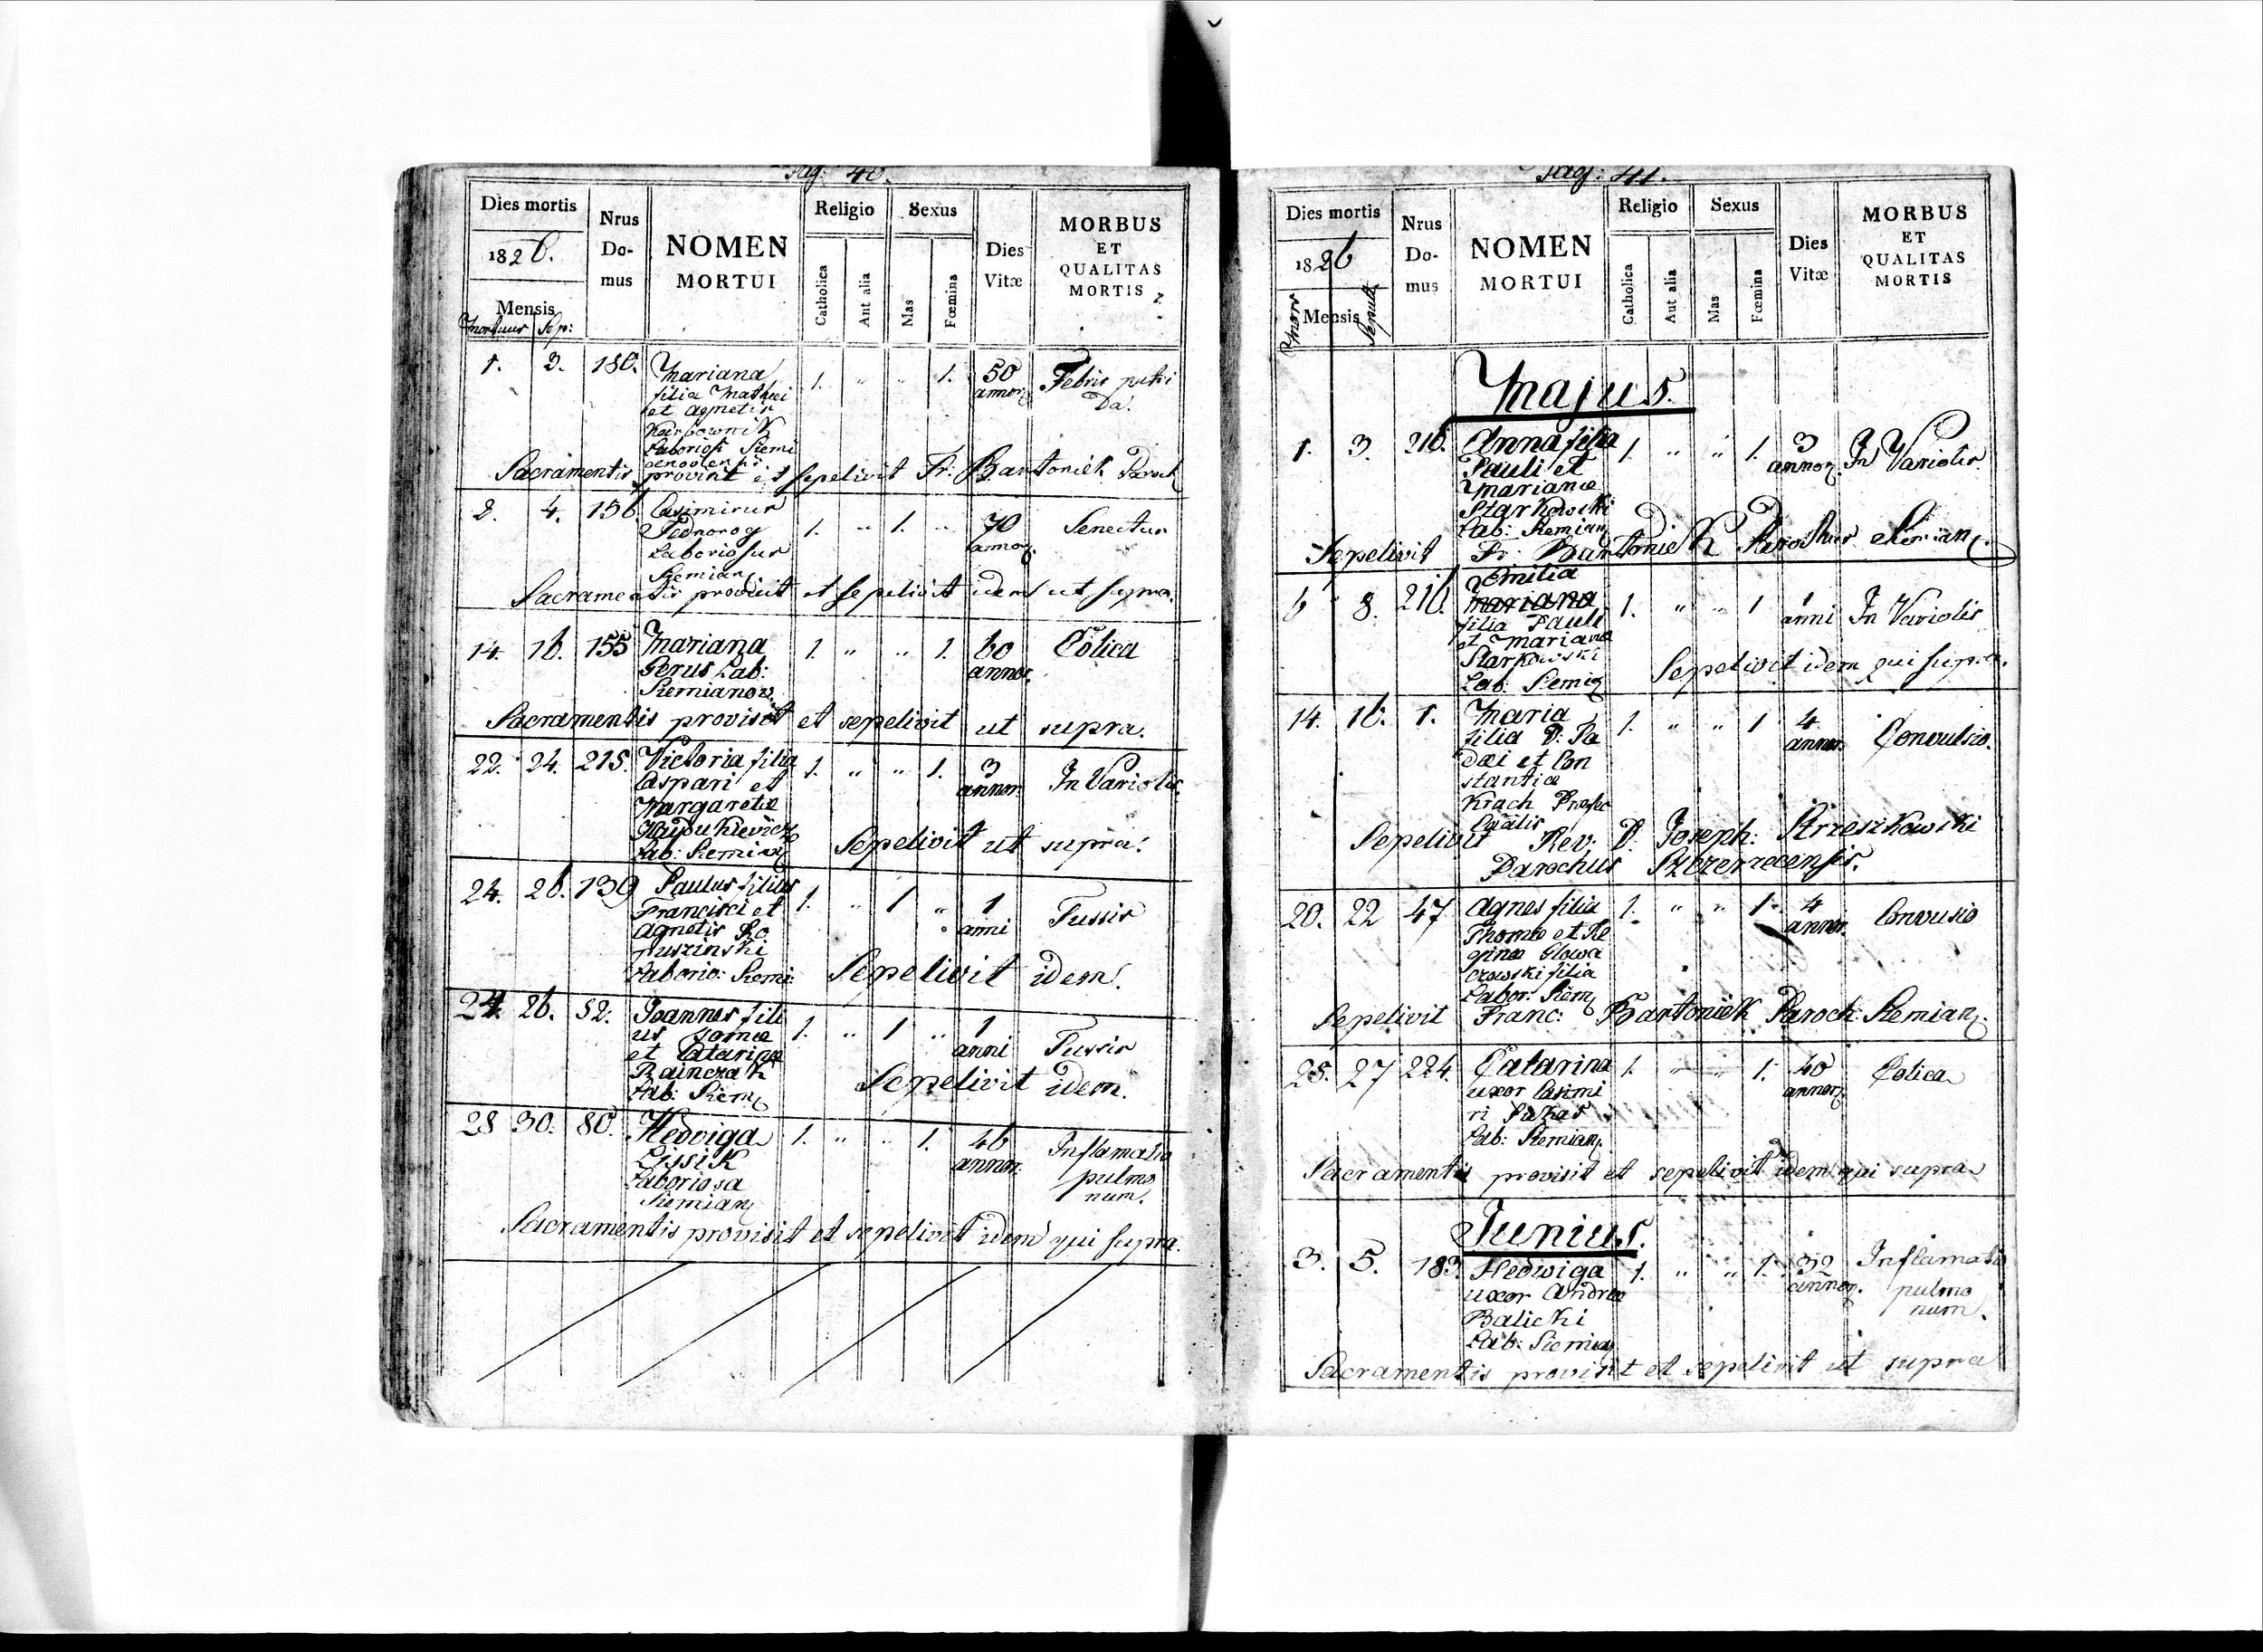 Pag: 40.
Dies mortis
1826.
Mensis
Mortuus Sep:
Nrus
Do-
mus
NOMEN
MORTUI
Religio
Catholica
Aut alia
Sexus
Mas
Fœmina
Dies
Vitæ
MORBUS
ET
QUALITAS
MORTIS
1. 3. 180. Mariana 1. " " 1. 50 Febris putri
filia Mathei annor. da.
et Agnetis
Karbownik
Laboriosi Siemi
anoviensis.
Sacramentis provisit et sepelivit Fr: Bartoniek Paroch
2. 4. 156. Casimirus 1. " 1. " 70 Senectus
Jednorog annor.
Laboriosus
Siemian
Sacramentis providit et sepelivit idem ut supra.
14. 16. 155 Mariana 1. " " 1. 60 Colica
Gerus Lab: annor.
Siemianow.
Sacramentis provisit et sepelivit ut supra.
22. 24. 215. Victoria filia 1. " " 1. 3 In Variolis.
Caspari et annor.
Margaretæ
Haydukievicz
Lab: Siemian
Sepelivit ut supra.
24. 26. 139 Paulus filius 1. " 1 " 1 Tussis
Francisci et anni
Agnetis Ro
muszinski
Laborio: Siemi:
Sepelivit idem.
24. 26. 52. Joannes fili 1. " 1 " 1 Tussis
us Tomæ anni
et Catarinæ
Rainczak
Lab: Siem
Sepelivit idem.
28 30. 80. Hedviga 1. " " 1. 46 Inflamatio
Lissik annor. pulmo
Laboriosa num.
Siemian
Sacramentis provisit et sepelivit idem qui supra.
Pag: 41.
Dies mortis
1826
Mensis
Mort
Sepult
Nrus
Do-
mus
NOMEN
MORTUI
Religio
Catholica
Aut alia
Sexus
Mas
Fœmina
Dies
Vitæ
MORBUS
ET
QUALITAS
MORTIS
Majus.
1. 3. 216. Anna filia 1. " " 1. 3 In Variolis.
Pauli et annor.
Marianæ
Starkowski
Lab: Siemian
Sepelivit Fr: Bartoniek Parochus Siemian.
6 8. 216. Emilia
Mariana 1. " " 1 1 In Variolis
filia Pauli anni
et Marianæ
Starkowski
Lab: Siemia
Sepelivit idem qui supra.
14. 16. 1. Maria 1. " " 1 4 Convulsio.
filia D: Ta annor.
dæi et Con
stantiæ
Krach Præfec
Localis
Sepelivit Rev: D: Joseph: Strzeszkowski
Parochus Szczerzecensis.
20. 22 47 Agnes filia 1. " " 1. 4 Convusio
Thomæ et Re annor.
ginæ Glowa
czowski filia
Labor: Siem
Sepelivit Franc: Bartoniek Paroch: Siemian.
25. 27 224. Catarina 1. " " 1. 40 Colica
uxor Casimi annor.
ri Pukas
Lab: Siemian
Sacramentis provisit et sepelivit idem qui supra
Junius.
3. 5. 183. Hedwiga 1. " " 1. 32 Inflamatio
uxor Andreæ annor. pulmo
Balicki num.
Lab: Siemian
Sacramentis provisit et sepelivit ut supra